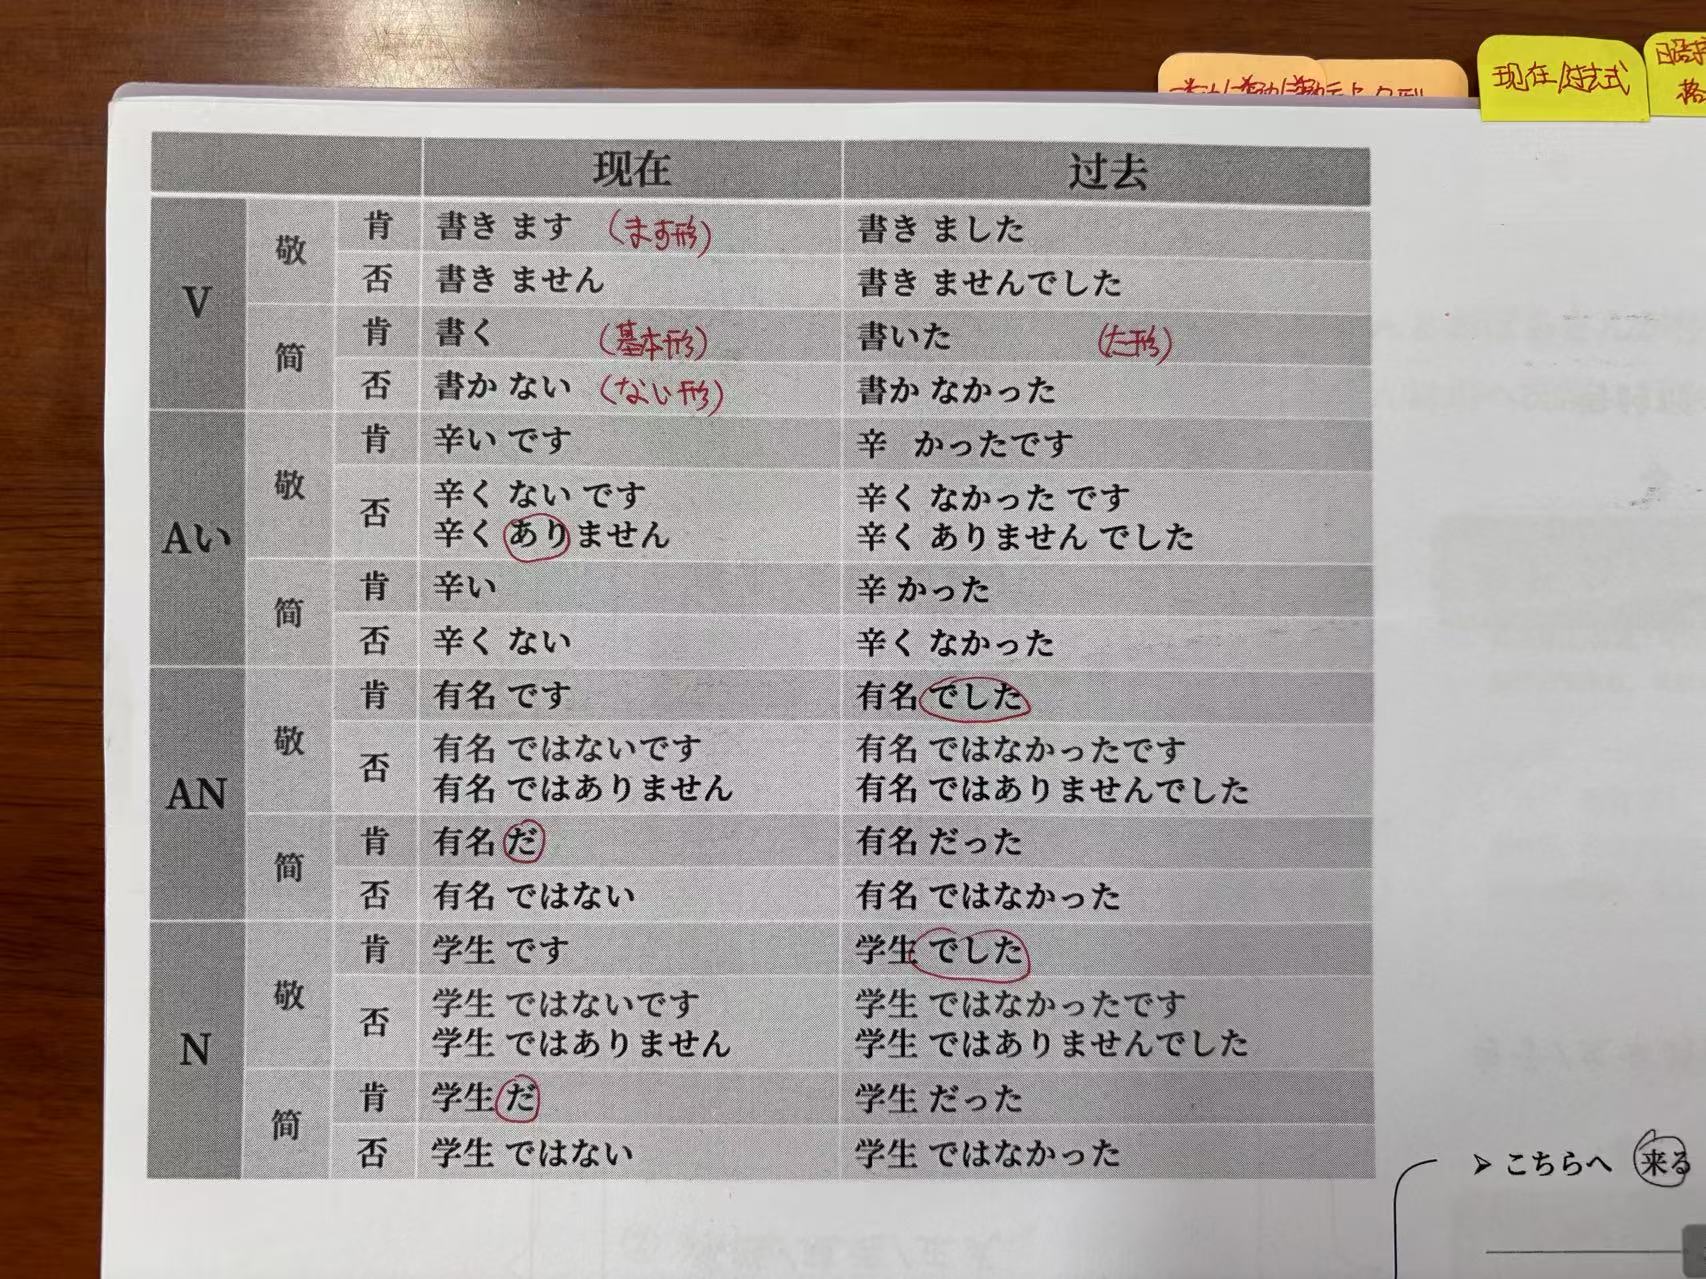 现在/过去式
现在 过去
V 敬 肯 書き ます (ます形) 書き ました
否 書き ません 書き ませんでした
简 肯 書く (基本形) 書いた (た形)
否 書か ない (ない形) 書か なかった
Aい 敬 肯 辛い です 辛 かったです
否 辛く ない です 辛く なかった です
辛く ありません 辛く ありません でした
简 肯 辛い 辛 かった
否 辛く ない 辛く なかった
AN 敬 肯 有名 です 有名 でした
否 有名 ではないです 有名 ではなかったです
有名 ではありません 有名 ではありませんでした
简 肯 有名 だ 有名 だった
否 有名 ではない 有名 ではなかった
N 敬 肯 学生 です 学生 でした
否 学生 ではないです 学生 ではなかったです
学生 ではありません 学生 ではありませんでした
简 肯 学生 だ 学生 だった
否 学生 ではない 学生 ではなかった
➢ こちらへ 来る